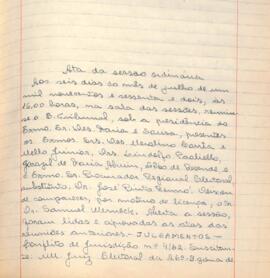 Ata da sessão ordinária
Aos seis dias do mês de julho de um
mil novecentos e sessenta e dois, às
16,00 horas, na sala das sessões, reuniu-
se o E. Tribunal, sob a presidência do
Exmo. Sr. Des. Faria e Sousa, presentes
os Exmos. Srs. Des. Merolino Corrêa e
Mello Júnior, Drs. Lindolfo Paoliello,
de Faria Alvim, de Rezende e
o Exmo. Sr. Procurador Regional Eleitoral
substituto, Dr. José Pinto Renno. Deixou
de comparecer, por motivo de licença, o Dr.
Dr. Samuel Werneck. Aberta a sessão,
foram lidas e aprovadas as atas das
reuniões anteriores - JULGAMENTOS -
Conflito de Jurisdição nº 4/62. Suscitan-
te: MM. Juiz Eleitoral da 269ª Zona de